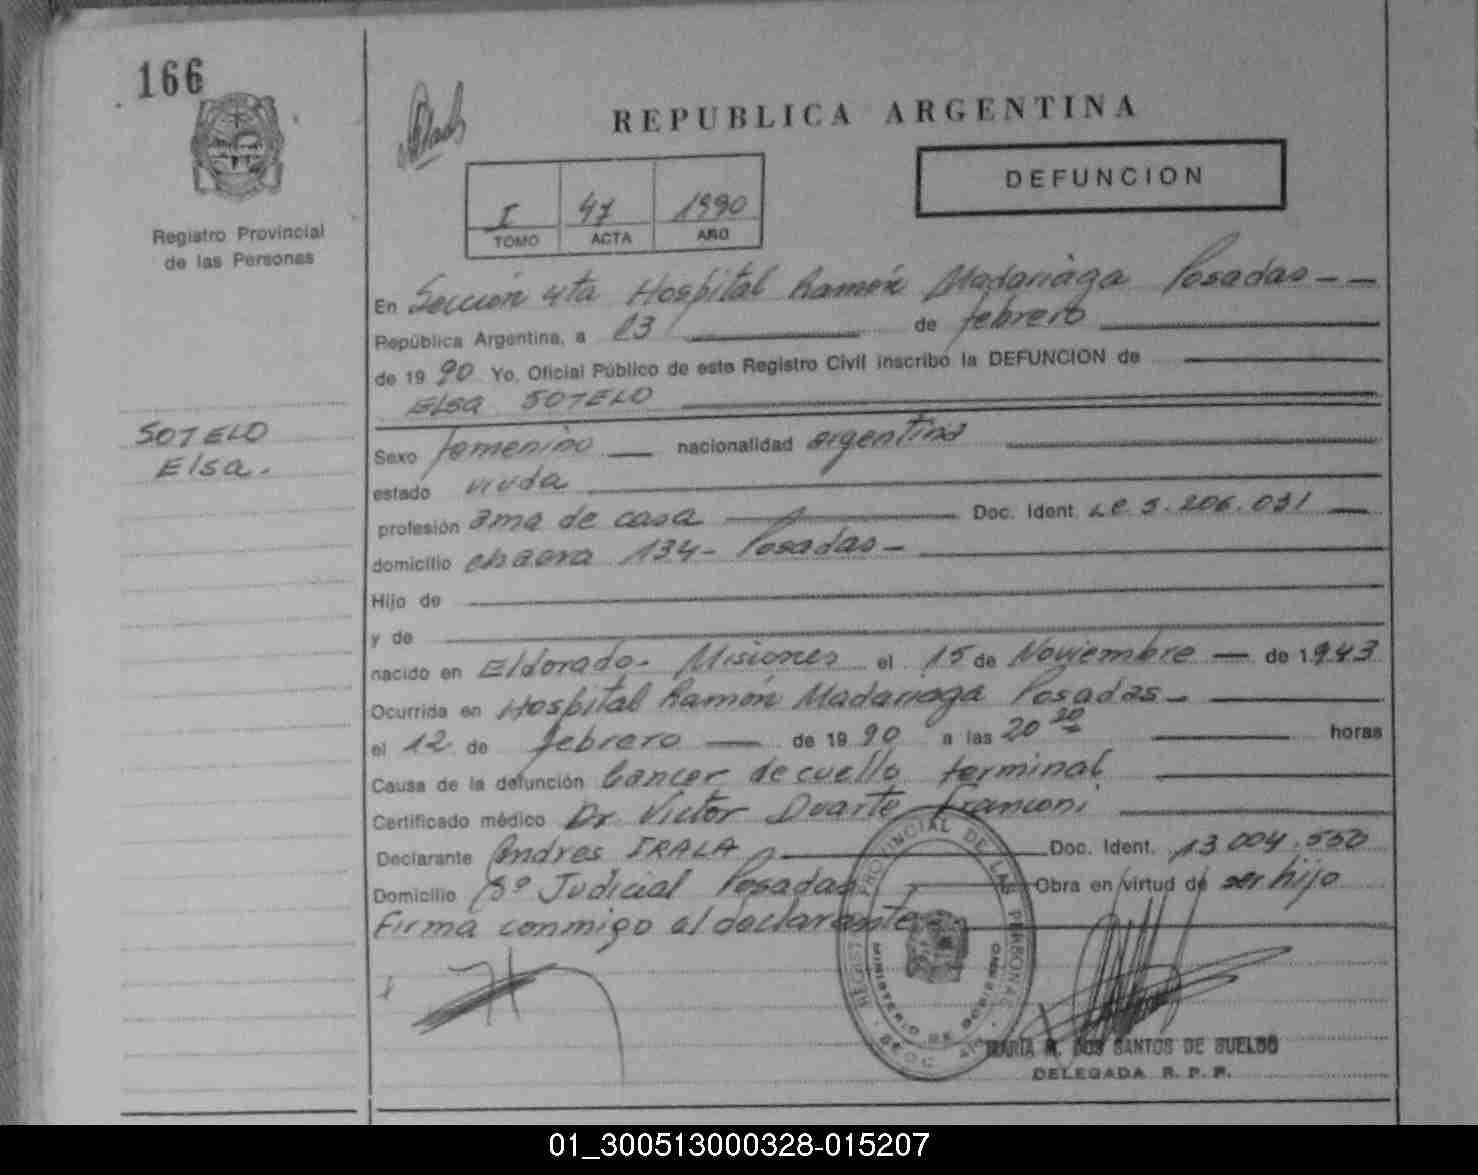 166
REPUBLICA ARGENTINA
DEFUNCION
I 47 1990
TOMO ACTA AÑO
Registro Provincial
de las Personas
En Sección 4ta Hospital Ramón Madariaga Posadas - -
República Argentina, a 13 de febrero
de 1990 Yo, Oficial Público de este Registro Civil inscribo la DEFUNCION de
Elsa SOTELO
SOTELO
Elsa.
Sexo femenino nacionalidad argentina
estado viuda
profesión ama de casa Doc. Ident. LC 5.206.031
domicilio chacra 134- Posadas -
Hijo de
y de
nacido en Eldorado. Misiones el 15 de Noviembre - de 1943
Ocurrida en Hospital Ramón Madariaga Posadas -
el 12 de febrero - de 1990 a las 20 20 horas
Causa de la defunción Cancer de cuello terminal
Certificado médico Dr. Victor Duarte Franconi
Declarante Andres IRALA Doc. Ident. 13.004.550
Domicilio 8º Judicial Posadas Obra en virtud de ser hijo
Firma conmigo el declarante
REGISTRO PROVINCIAL DE LAS PERSONAS
MINISTERIO DE GOBIERNO
MARIA R. DOS SANTOS DE SUELDO
DELEGADA R. P. P.
01_300513000328-015207